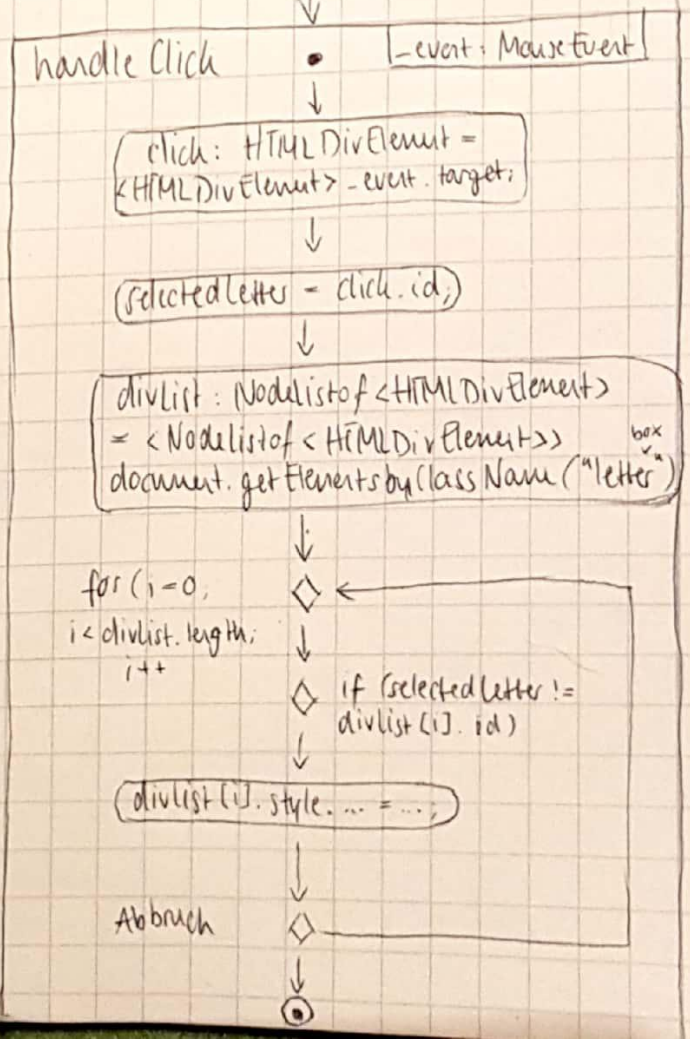 handle Click
_event: MouseEvent
click: HTMLDivElement =
<HTMLDivElement> _event.target;
selectedLetter = click.id;
divlist: Nodelistof <HTMLDivElement>
= <Nodelistof <HTMLDivElement>>
box
document.getElementsbyClassName("letter")
for (i=0;
i< divlist.length;
i++
if (selectedLetter !=
divlist[i].id)
divlist[i].style. ... = ...;
Abbruch